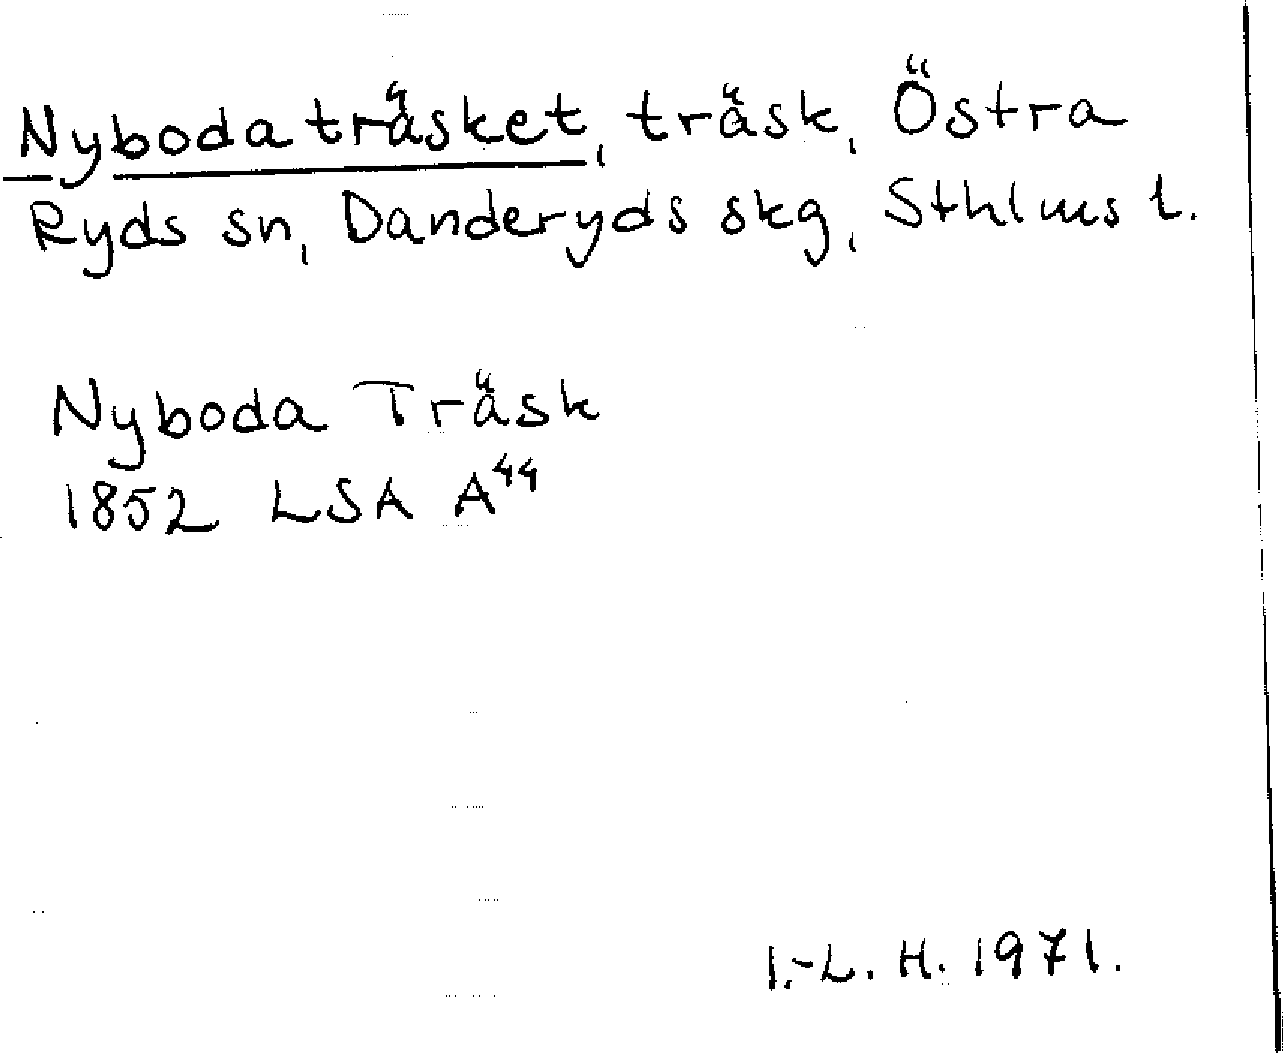 Nyboda träsket, träsk, Östra
Ryds sn, Danderyds skg, Sthlms l.
Nyboda Träsk
1852 LSA A⁴⁴
I.-L. H. 1971.